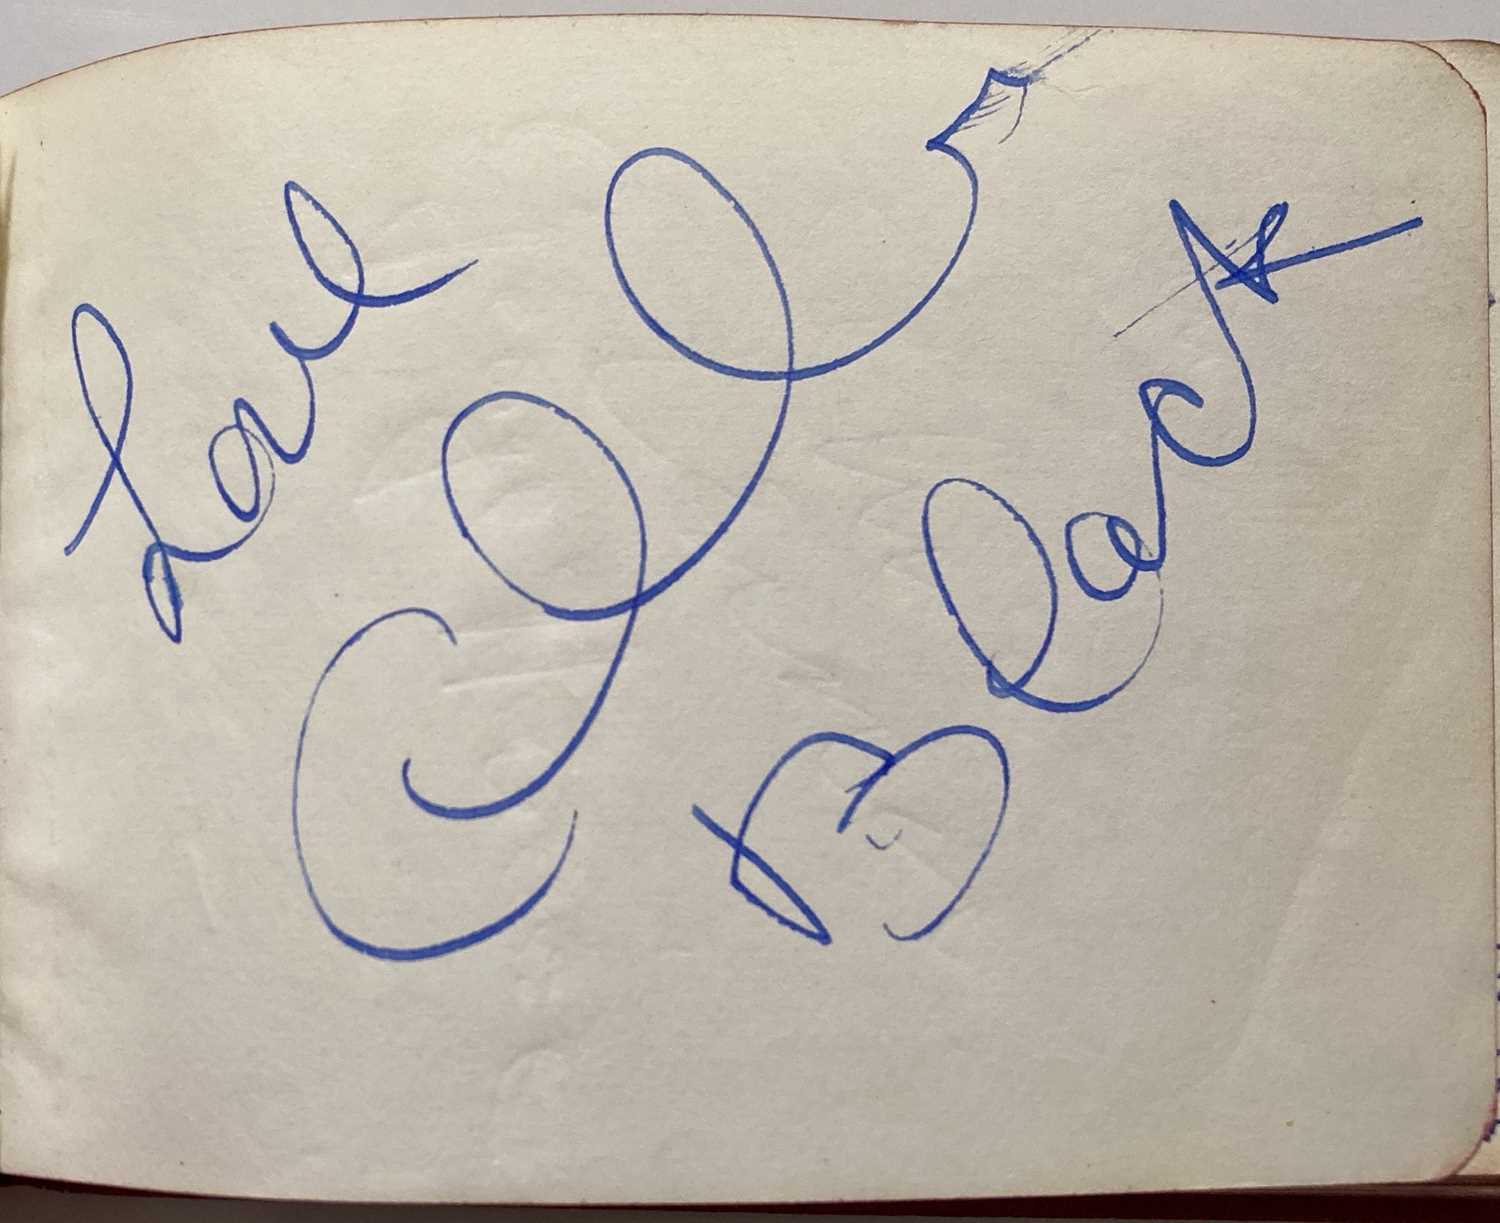 Love
Cilla
Black